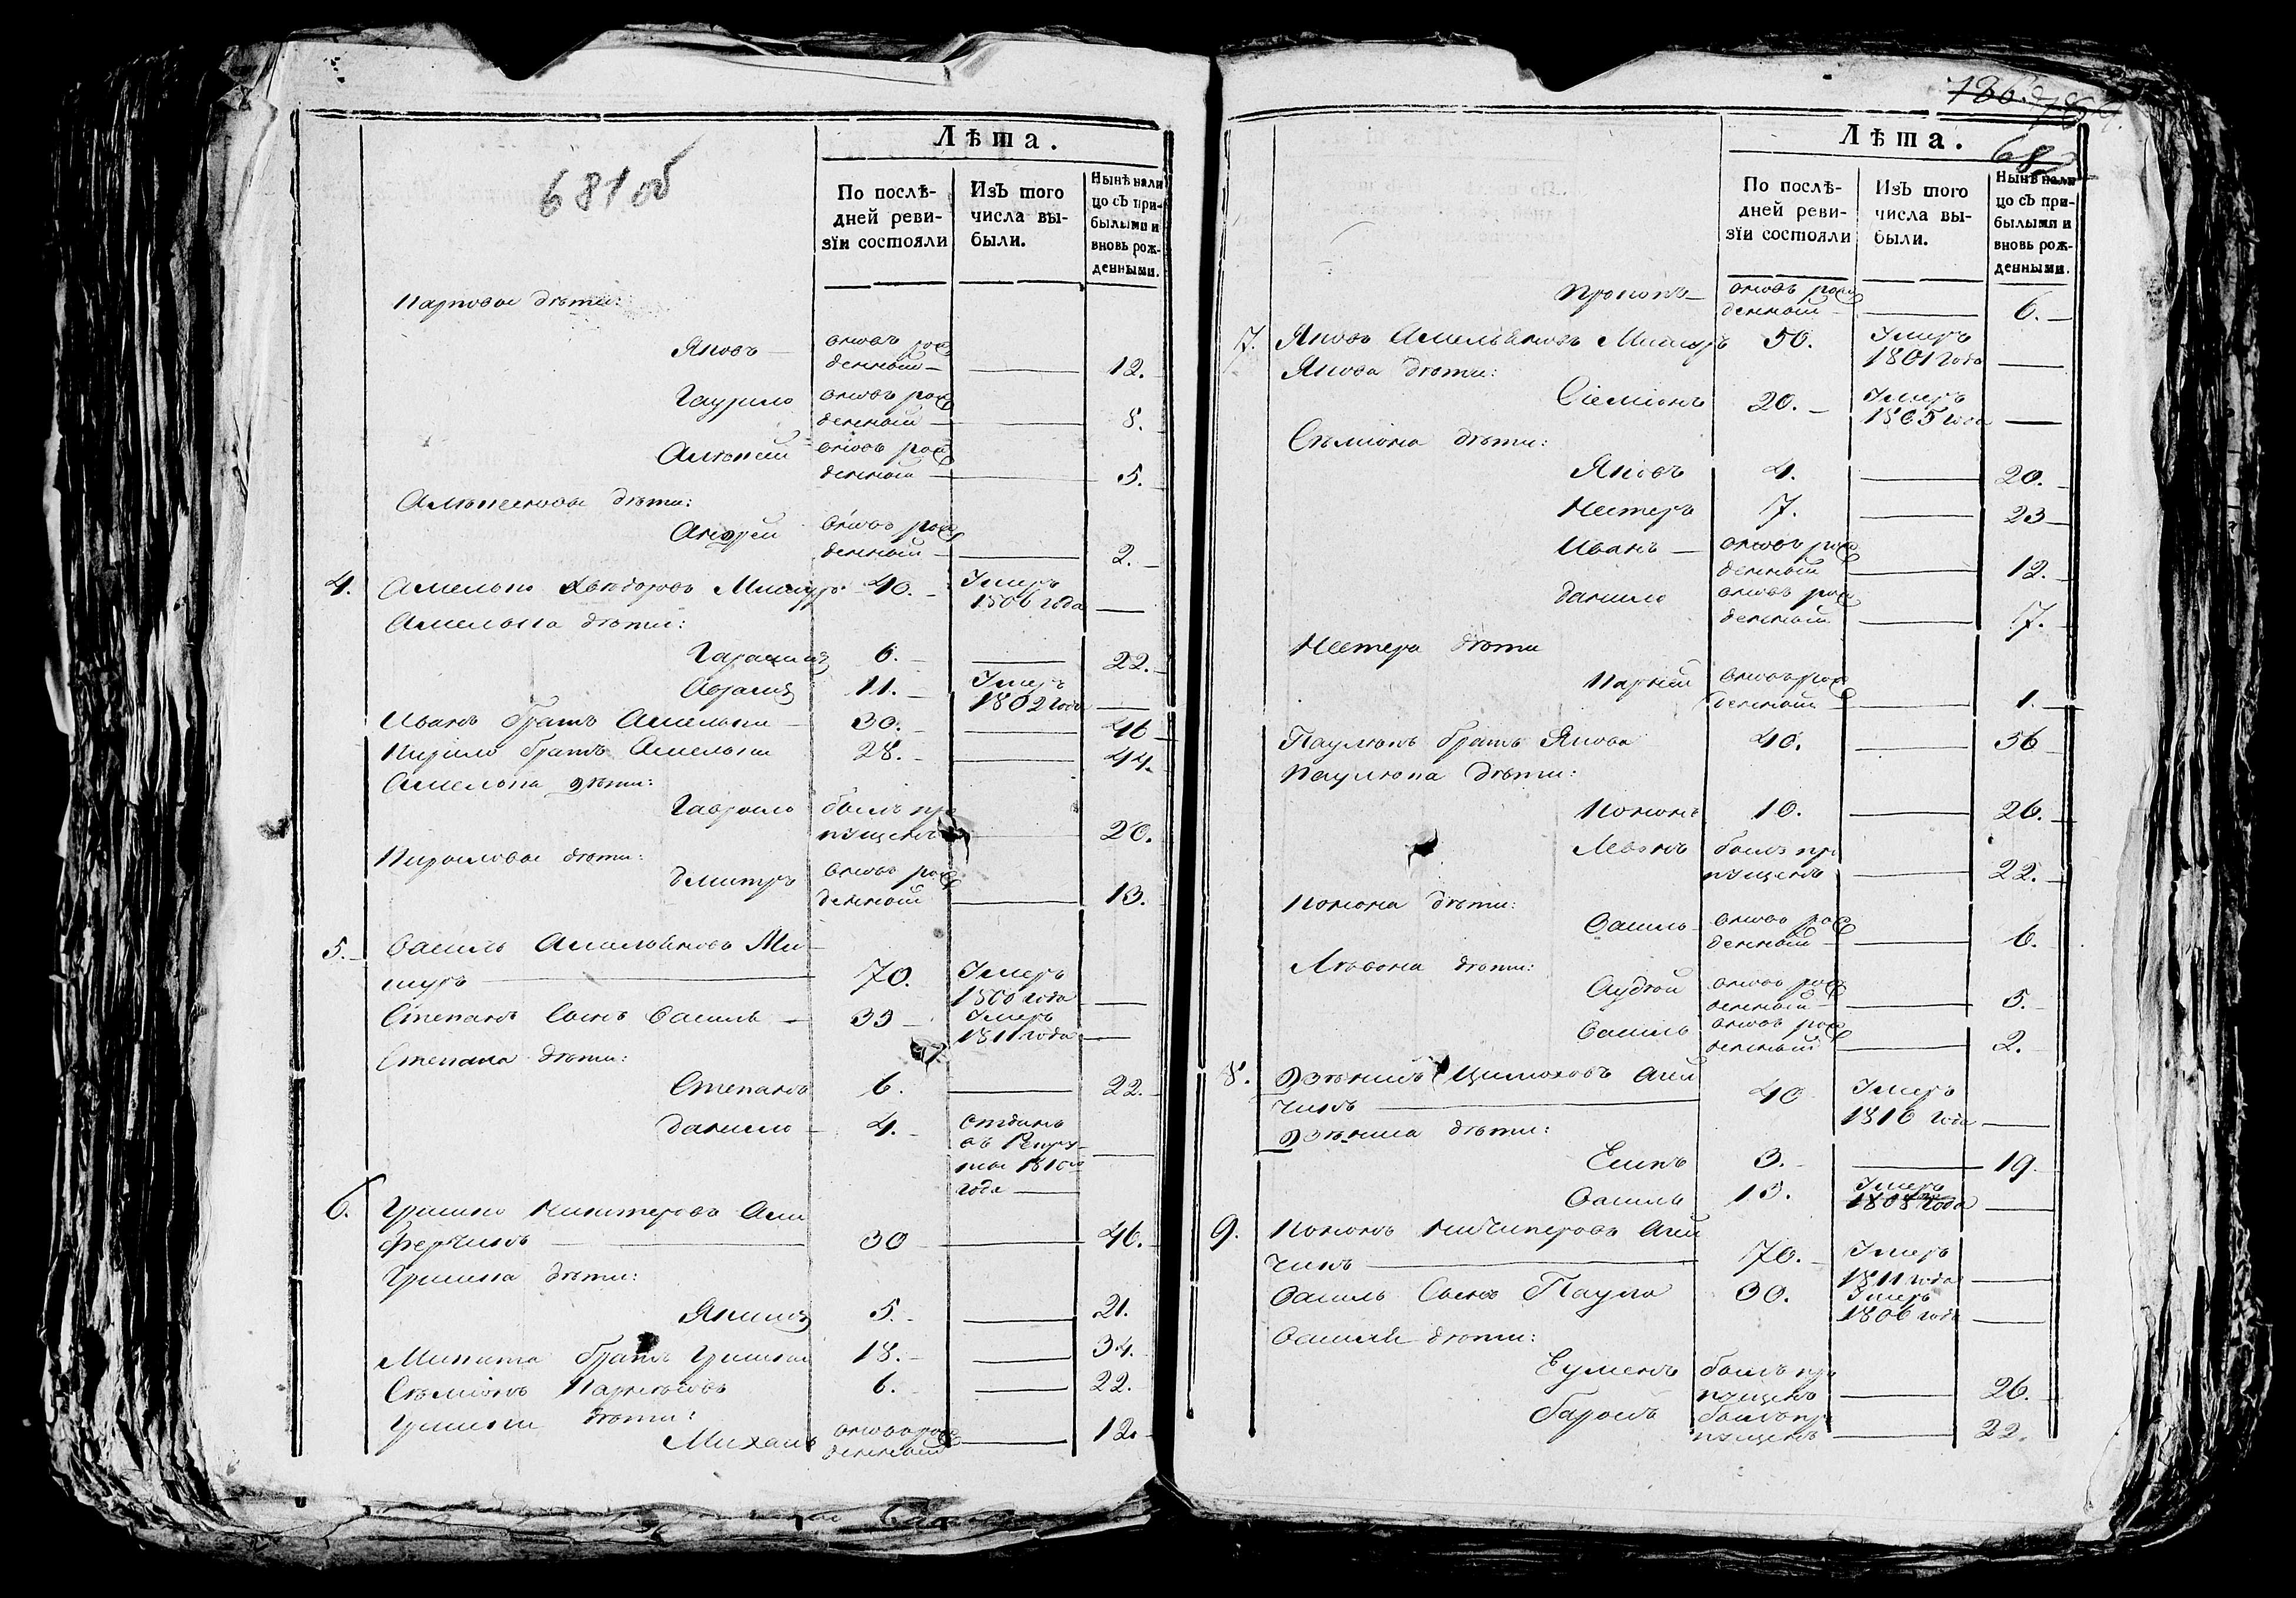 681 об
Лѣта.
По послѣ-
дней реви-
зїи состояли
Изъ того
числа вы-
были.
Нынѣ нали
цо съ при-
былыми и
вновь рож-
денными.
Карповы дѣти:
Яковъ — вновь рож
денный — — 12.
Гаурило вновь рож
денный — — 8.
Алексѣй вновь рож
денный — — 5.
Алексѣевы дѣти:
Андрей вновь рож
денный — — 2.
4. Амелько Хведоровъ 40. Умеръ
1806 года —
Амелька дѣти:
Гарасим 6. — 22.
Абрам 11. Умеръ
1802 года —
Иванъ братъ Амельки — 30. — 46
Кирило братъ Амельки 28. — 44.
Амелька дѣти:
Гаврило былъ про
пущенъ — 20.
Кириловы дѣти:
Дмитръ вновь рож
денный — 13.
5. Василь Амельяновъ Ми
шуръ — 70. Умеръ
1800 года —
Степанъ Сынъ Василя — 33 Умеръ
1811 года —
Степана дѣти:
Степанъ 6. — 22.
Данило 4. отданъ
въ Рекру
ты 1810го
года —
6. Гришко
30 — 46.
Гришка дѣти:
Яким 5. — 21.
Микита братъ Гришки 18. — 34.
Сѣміонъ 6. — 22.
Гришки дѣти:
Михаль вновь рож
денный — 12.
786.
68
Лѣта.
По послѣ-
дней реви-
зїи состояли
Изъ того
числа вы-
были.
Нынѣ нали
цо съ при-
былыми и
вновь рож-
денными.
Прокопъ — вновь рож
денный — — 6.
7. Яковъ Амельяновъ Мишуръ 50. Умеръ
1801 года —
Якова дѣти:
Сіеміонъ 20. — Умеръ
1805 года —
Сѣміона дѣти:
Яковъ 4. — 20.
Нестеръ 7. — 23
Иванъ — вновь рож
денный — 12.
Данило вновь рож
денный — 7.
Нестера дѣти
вновь рож
денный — 1.
Паулюкъ братъ Якова 40. — 56
Паулюка дѣти:
Кононъ 10. — 26.
Левонъ былъ про
пущенъ — 22.
Конона дѣти:
Василь вновь рож
денный — 6.
Лѣвона дѣти:
Аудѣй вновь рож
денный — 5.
Василь вновь рож
денный — 2.
8. Цимоховъ
чикъ — 40 Умеръ
1816 года —
дѣти:
Есипъ 3. — 19
Василь 13. Умеръ
1808 года —
9. Кононъ Ничипоровъ
чикъ — 70. Умеръ
1811 года —
Василь Сынъ 30. Умеръ
1806 года —
Василя дѣти:
Еуменъ былъ про
пущенъ — 26.
былъ про
пущенъ — 22.